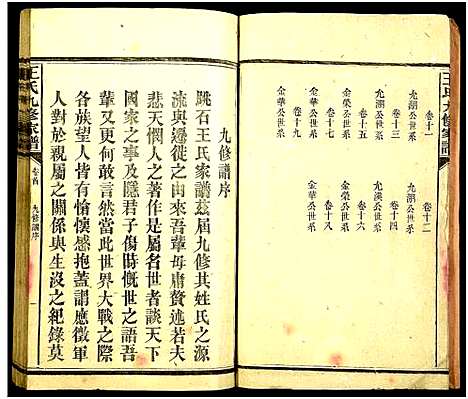 王氏九修家譜
卷十一
九湖公世系
卷十二
九湖公世系
卷十三
九湖公世系
卷十四
九漢公世系
卷十五
金榮公世系
卷十六
九漢公世系
卷十七
金榮公世系
卷十八
金華公世系
卷十九
金華公世系
九修譜序
跳石王氏家譜茲屆九修其姓氏之源
流與遷徙之由來吾輩毋庸贅述若夫
悲天憫人之著作是屬名世者談天下
國家之事及隱君子傷時慨世之語吾
輩又更不敢言然當此世界大戰之際
各族望人皆有愴懷感抱蓋謂應徵軍
人對於親屬之關係與生沒之紀錄莫
王氏九修家譜
卷首
九修譜序
一